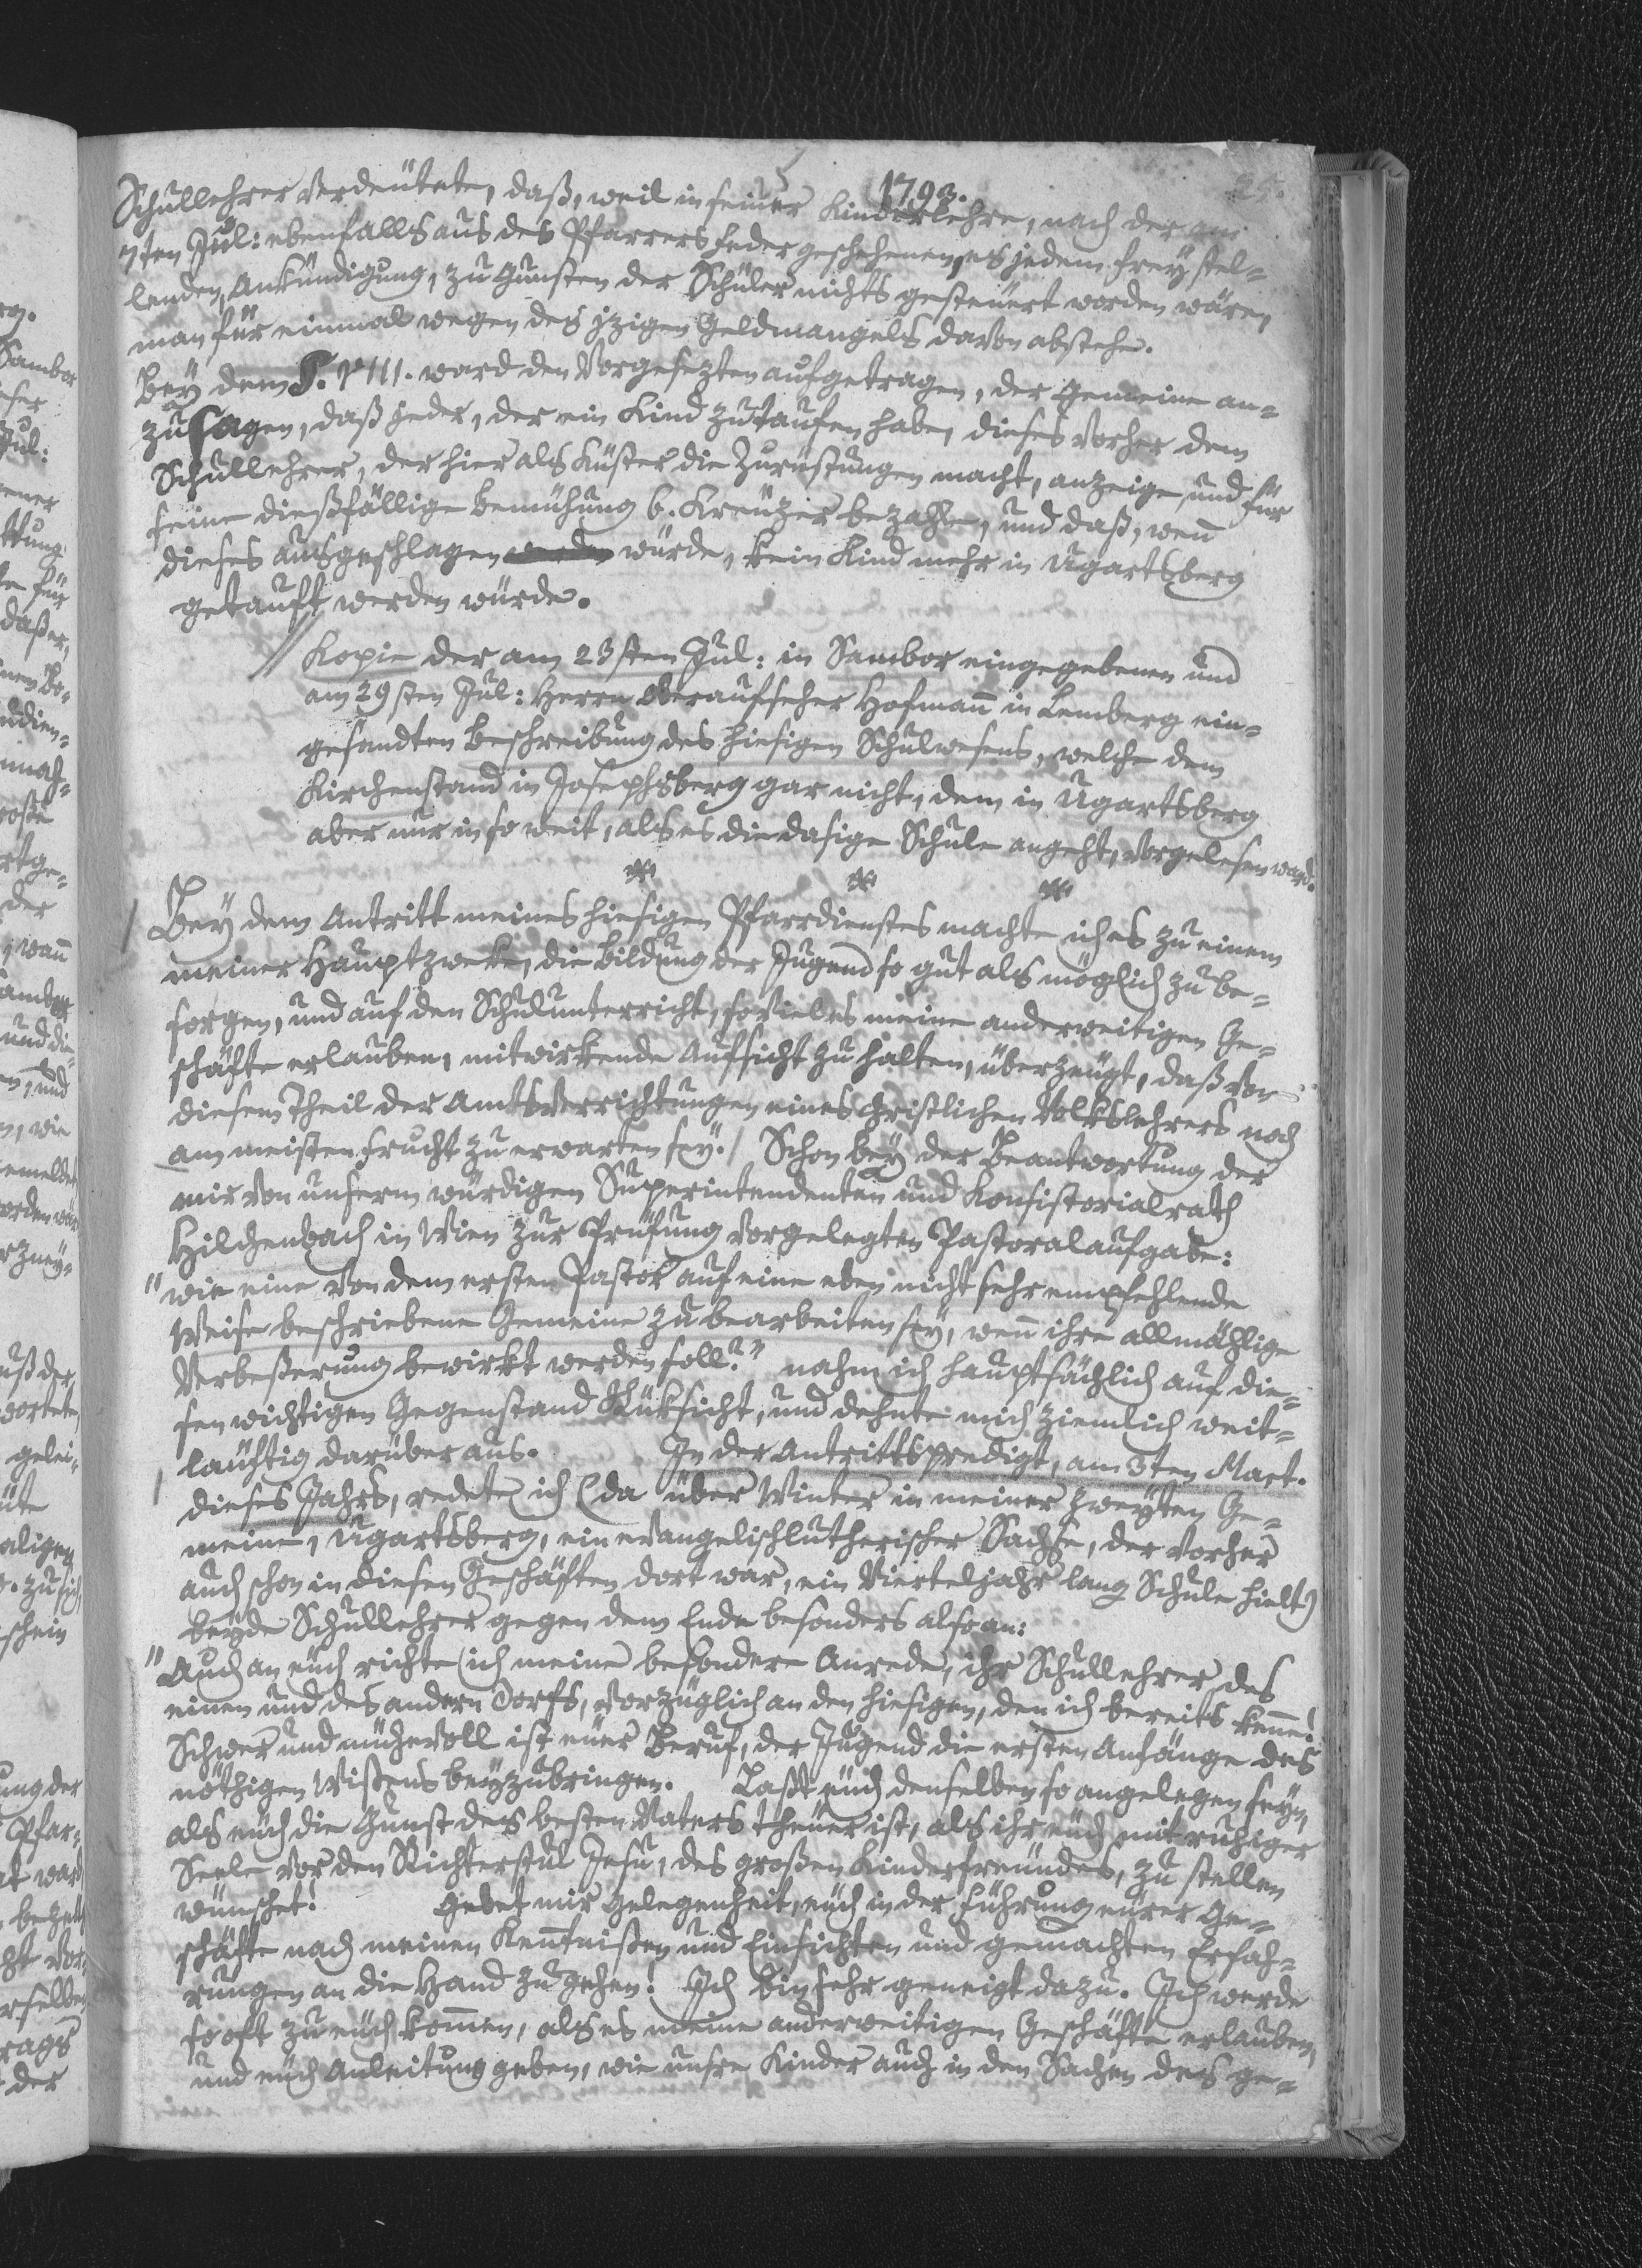 1793.
25.
Schullehrer verdeuteten, daß, weil in seiner Kinderlehre, nach der am
7ten Jul: ebenfalls aus des Pfarrers Feder geschehenen, es jedem frey stel=
lenden, Ankündigung, zu Gunsten der Schüler nichts gesteuert worden wäre,
man für einmal wegen des jzigen Geldmangels davon abstehe.
Bey dem §. VIII. ward den Vorgesezten aufgetragen, der Gemeine an=
zusagen, daß jeder, der ein Kind zu taufen habe, dieses vorher dem
Schullehrer, der hier als Küster die Zurüstungen macht, anzeige, und für
seine dießfällige Bemühung 6. Kreuzer bezahle, und daß, wenn̄
dieses ausgeschlagen würde, kein Kind mehr in Ugartsberg
getauft werden würde.
Kopie der am 23sten Jul: in Sambor eingegebenen und
am 29sten Jul: Herrn Oberaufseher Hofman̄ in Lemberg ein=
gesandten Beschreibung des hiesigen Schulwesens, welche dem
Kirchenstand in Josephsberg gar nicht, dem in Ugartsberg
aber nur in so weit, als es die dasige Schule angeht, vorgelesen ward.
* * *
Bey dem Antritt meines hiesigen Pfarrdienstes machte ich es zu einem
meiner Hauptzweke, die Bildung der Jugend so gut als möglich zu be=
sorgen, und auf den Schulunterricht, so viel es meine anderweitigen Ge=
schäfte erlauben, mitwirkende Aufsicht zu halten, überzeugt, daß von
diesem Theil der Amtsverrichtungen eines christlichen Volkslehrers noch
am meisten Frucht zu erwarten sey. / Schon bey der Beantwortung der
mir von unserm würdigen Superintendenten und Konsistorialrath
Hilchenbach in Wien zur Prüfung vorgelegten Pastoralaufgabe:
"wie eine von dem ersten Pastor auf eine eben nicht sehr empfehlende
Weise beschriebene Gemeine zu bearbeiten sey, wen̄ ihre allmählige
Verbeßerung bewirkt werden soll?" nahm ich hauptsächlich auf die=
sen wichtigen Gegenstand Rüksicht, und dehnte mich ziemlich weit=
läuftig darüber aus. In der Antrittspredigt, am 3ten Mart.
dieses Jahrs, redete ich (da über Winter in meiner zweyten Ge=
meine, Ugartsberg, ein evangelischlutherischer Sachse, der vorher
auch schon in diesen Geschäften dort war, ein Vierteljahr lang Schule hielt)
beyde Schullehrer gegen dem Ende besonders also an:
"Auch an euch richte ich meine besondere Anrede, ihr Schullehrer des
einen und des andern Dorfs, vorzüglich an den hiesigen, den ich bereits ken̄e!
Schwer und mühevoll ist euer Beruf, der Jugend die ersten Anfänge des
nöthigen Wißens beyzubringen. Laßt euch denselben so angelegen seyn,
als euch die Gunst des besten Vaters theuer ist, als ihr euch mit ruhiger
Seele vor den Richterstul Jesu, des großen Kinderfreundes, zu stellen
wünschet! Gebet mir Gelegenheit, euch in der Führung eurer Ge=
schäfte nach meinen Ken̄tnißen und Einsichten und gemachten Erfah=
rungen an die Hand zu gehen! Ich bin sehr geneigt dazu. Ich werde
so oft zu euch kom̄en, als es meine anderweitigen Geschäfte erlauben,
und euch Anleitung geben, wie unsre Kinder auch in den Sachen des ge=